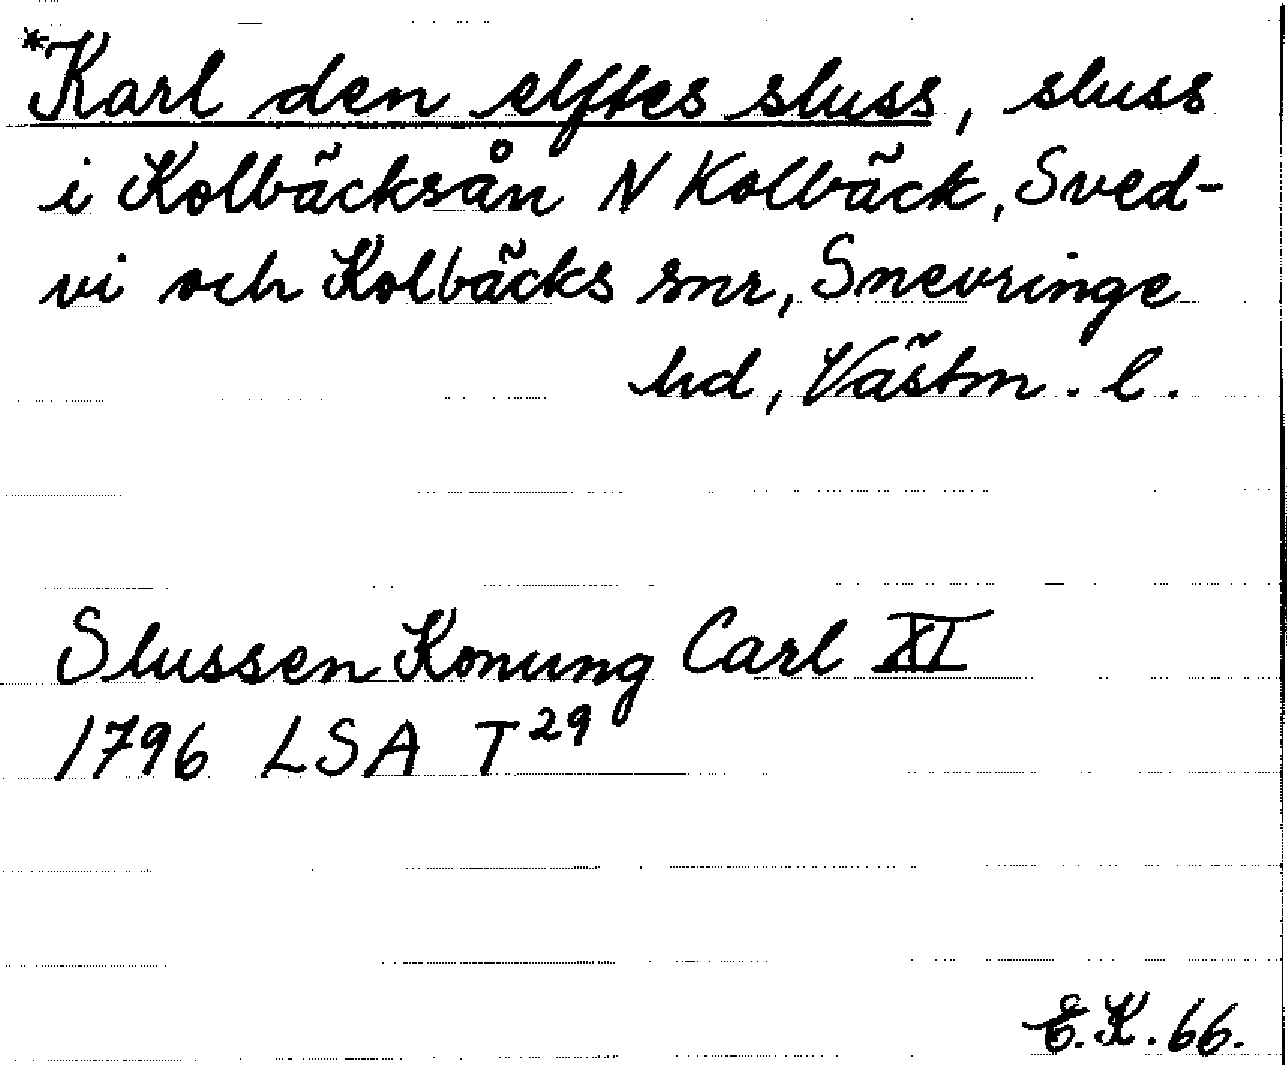 *Karl den elftes sluss, sluss
i Kolbäcksån N Kolbäck, Sved-
vi och Kolbäcks snr, Snevringe
hd, Västm. l.
Slussen Konung Carl XI
1796 LSA T 29
E.K. 66.